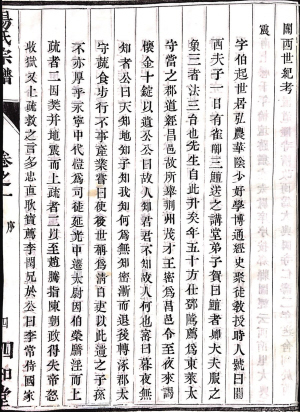 關西世紀考
震
字伯起世居弘農華陰少好學博通經史聚徒教授時人號曰關
西夫子一日有雀啣三鱣送之講堂弟子賀曰鱣者卿大夫服之
象三者法三台也先生自此升矣年五十方仕鄧隲薦爲東萊太
守當之郡道經昌邑故所舉荆州茂才王密爲昌邑令至夜來謁
懷金十錠以遺公公曰故人知君君不知故人何也密曰暮夜無
知者公曰天知地知子知我知何爲無知密漸而退後轉涿郡太
守蔬食步行不事產業嘗曰使後世稱爲清白吏以此遺之子孫
不亦厚乎永寧中代愷爲司徒延光中遷太尉因伯榮驕淫而上
疏者二因樊并地震而上疏者三以至趙騰指陳朝政得失帝怒
收獄又上疏救之言多忠直耿寶薦李閏兄於公曰李常侍國家
楊氏宗譜
卷之一
序
四
四知堂